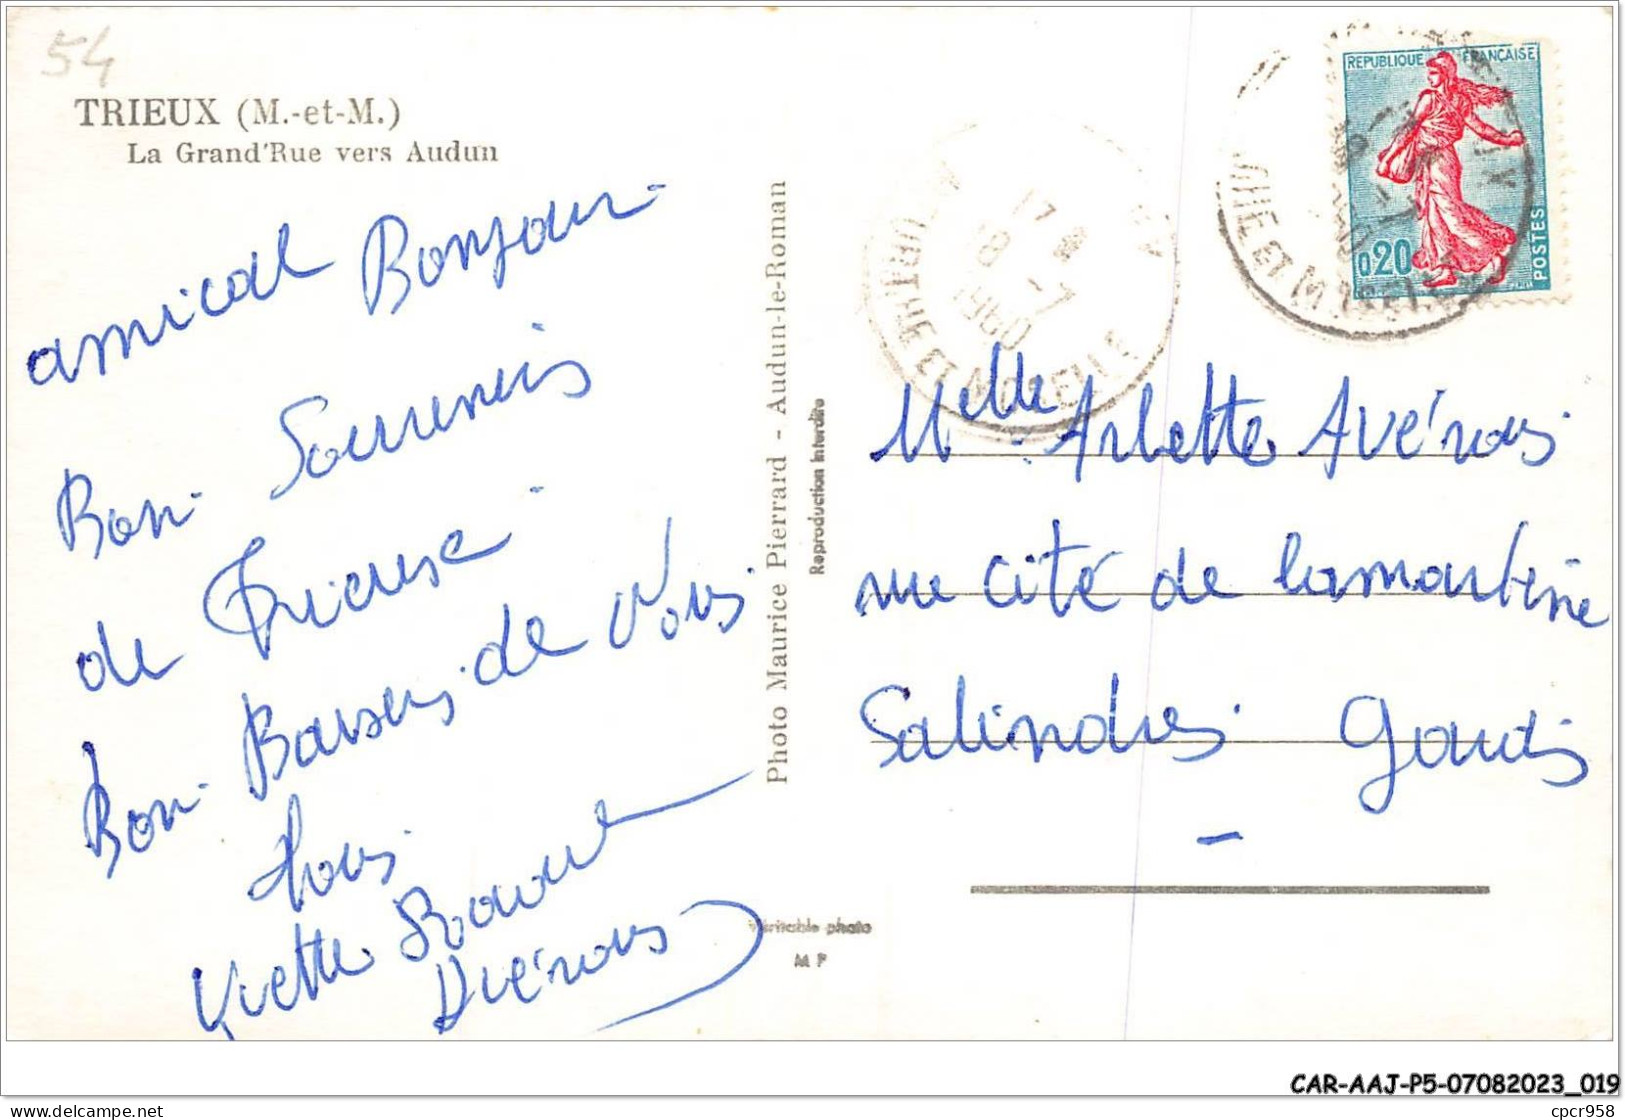 54
TRIEUX (M.-et-M.)
La Grand'Rue vers Audun
amical Bonjour
Bon Souvenir
de Trieux
Bon Baisers de Vous
tous
Yvette Roland
Avérous
Photo Maurice Pierrard - Audun-le-Roman
Reproduction interdite
Véritable photo
M P
17 H
18 -7
1960
MEURTHE ET MOSELLE
REPUBLIQUE FRANÇAISE
0,20
POSTES
Melle Arlette Avérous
rue cité de lamartine
Salindres Gard
CAR-AAJ-P5-07082023_019
https://www.delcampe.net
cpcr958